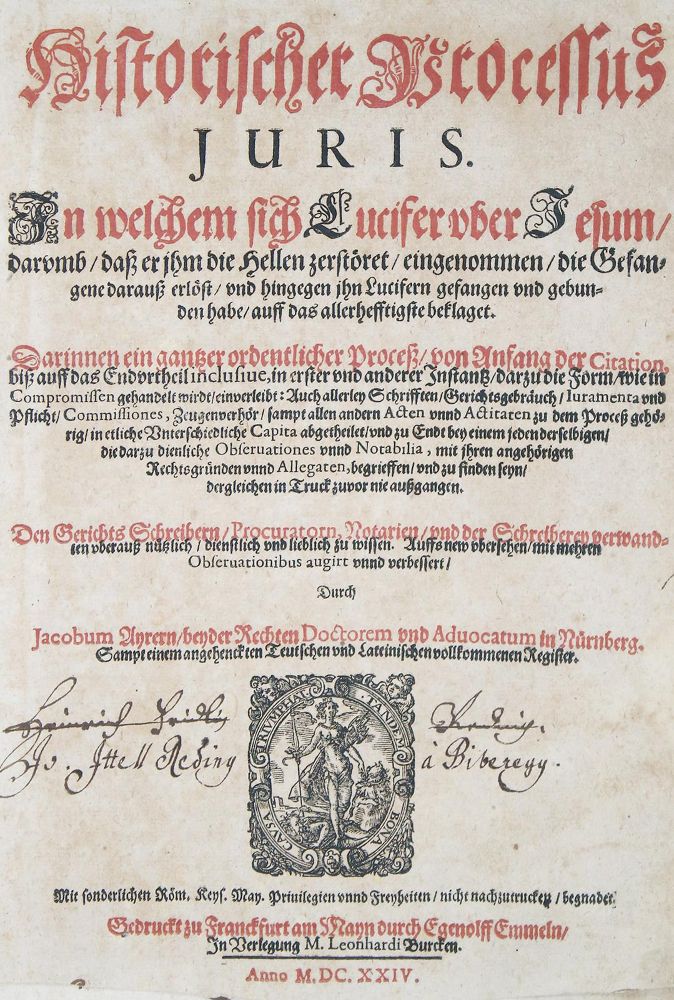 Historischer Processus
JURIS.
In welchem sich Lucifer vber Jesum/
darvmb/ daß er jhm die Hellen zerstöret/ eingenommen/ die Gefan-
gene darauß erlöst/ vnd hingegen jhn Lucifern gefangen vnd gebun-
den habe/ auff das allerhefftigste beklaget.
Darinnen ein gantzer ordentlicher Proceß/ von Anfang der Citation,
biß auff das Endvrtheil inclusiue, in erster vnd anderer Instantz/ darzu die Form/ wie in
Compromissen gehandelt wirdt/ einverleibt: Auch allerley Schrifften/ Gerichtsgebräuch/ Iuramenta vnd
Pflicht/ Commissiones, Zeugenverhör/ sampt allen andern Acten vnnd Actitaten zu dem Proceß gehö-
rig/ in etliche Vnterschiedliche Capita abgetheilet/ vnd zu Endt bey einem jeden derselbigen/
die darzu dienliche Obseruationes vnnd Notabilia, mit jhren angehörigen
Rechtsgründen vnnd Allegaten, begrieffen/ vnd zu finden seyn/
dergleichen in Truck zuvor nie außgangen.
Den Gerichts Schreibern/ Procuratorn, Notarien/ vnd der Schreiberey verwand-
ten vberauß nützlich/ dienstlich vnd lieblich zu wissen. Auffs new vbersehen/ mit mehren
Obseruationibus augirt vnnd verbessert/
Durch
Jacobum Ayrern/ beyder Rechten Doctorem vnd Aduocatum in Nürnberg.
Sampt einem angehenckten Teutschen vnd Lateinischen vollkommenen Register.
TRIVMPHAT TANDEM
CAVSA BONA
Heinrich Fridlin
Jo. Ittell Reding à Biberegg.
Mit sonderlichen Röm. Keys. May. Priuilegien vnnd Freyheiten/ nicht nachzutrucken/ begnadet.
Gedruckt zu Franckfurt am Mayn durch Egenolff Emmeln/
In Verlegung M. Leonhardi Burcken.
Anno M. DC. XXIV.